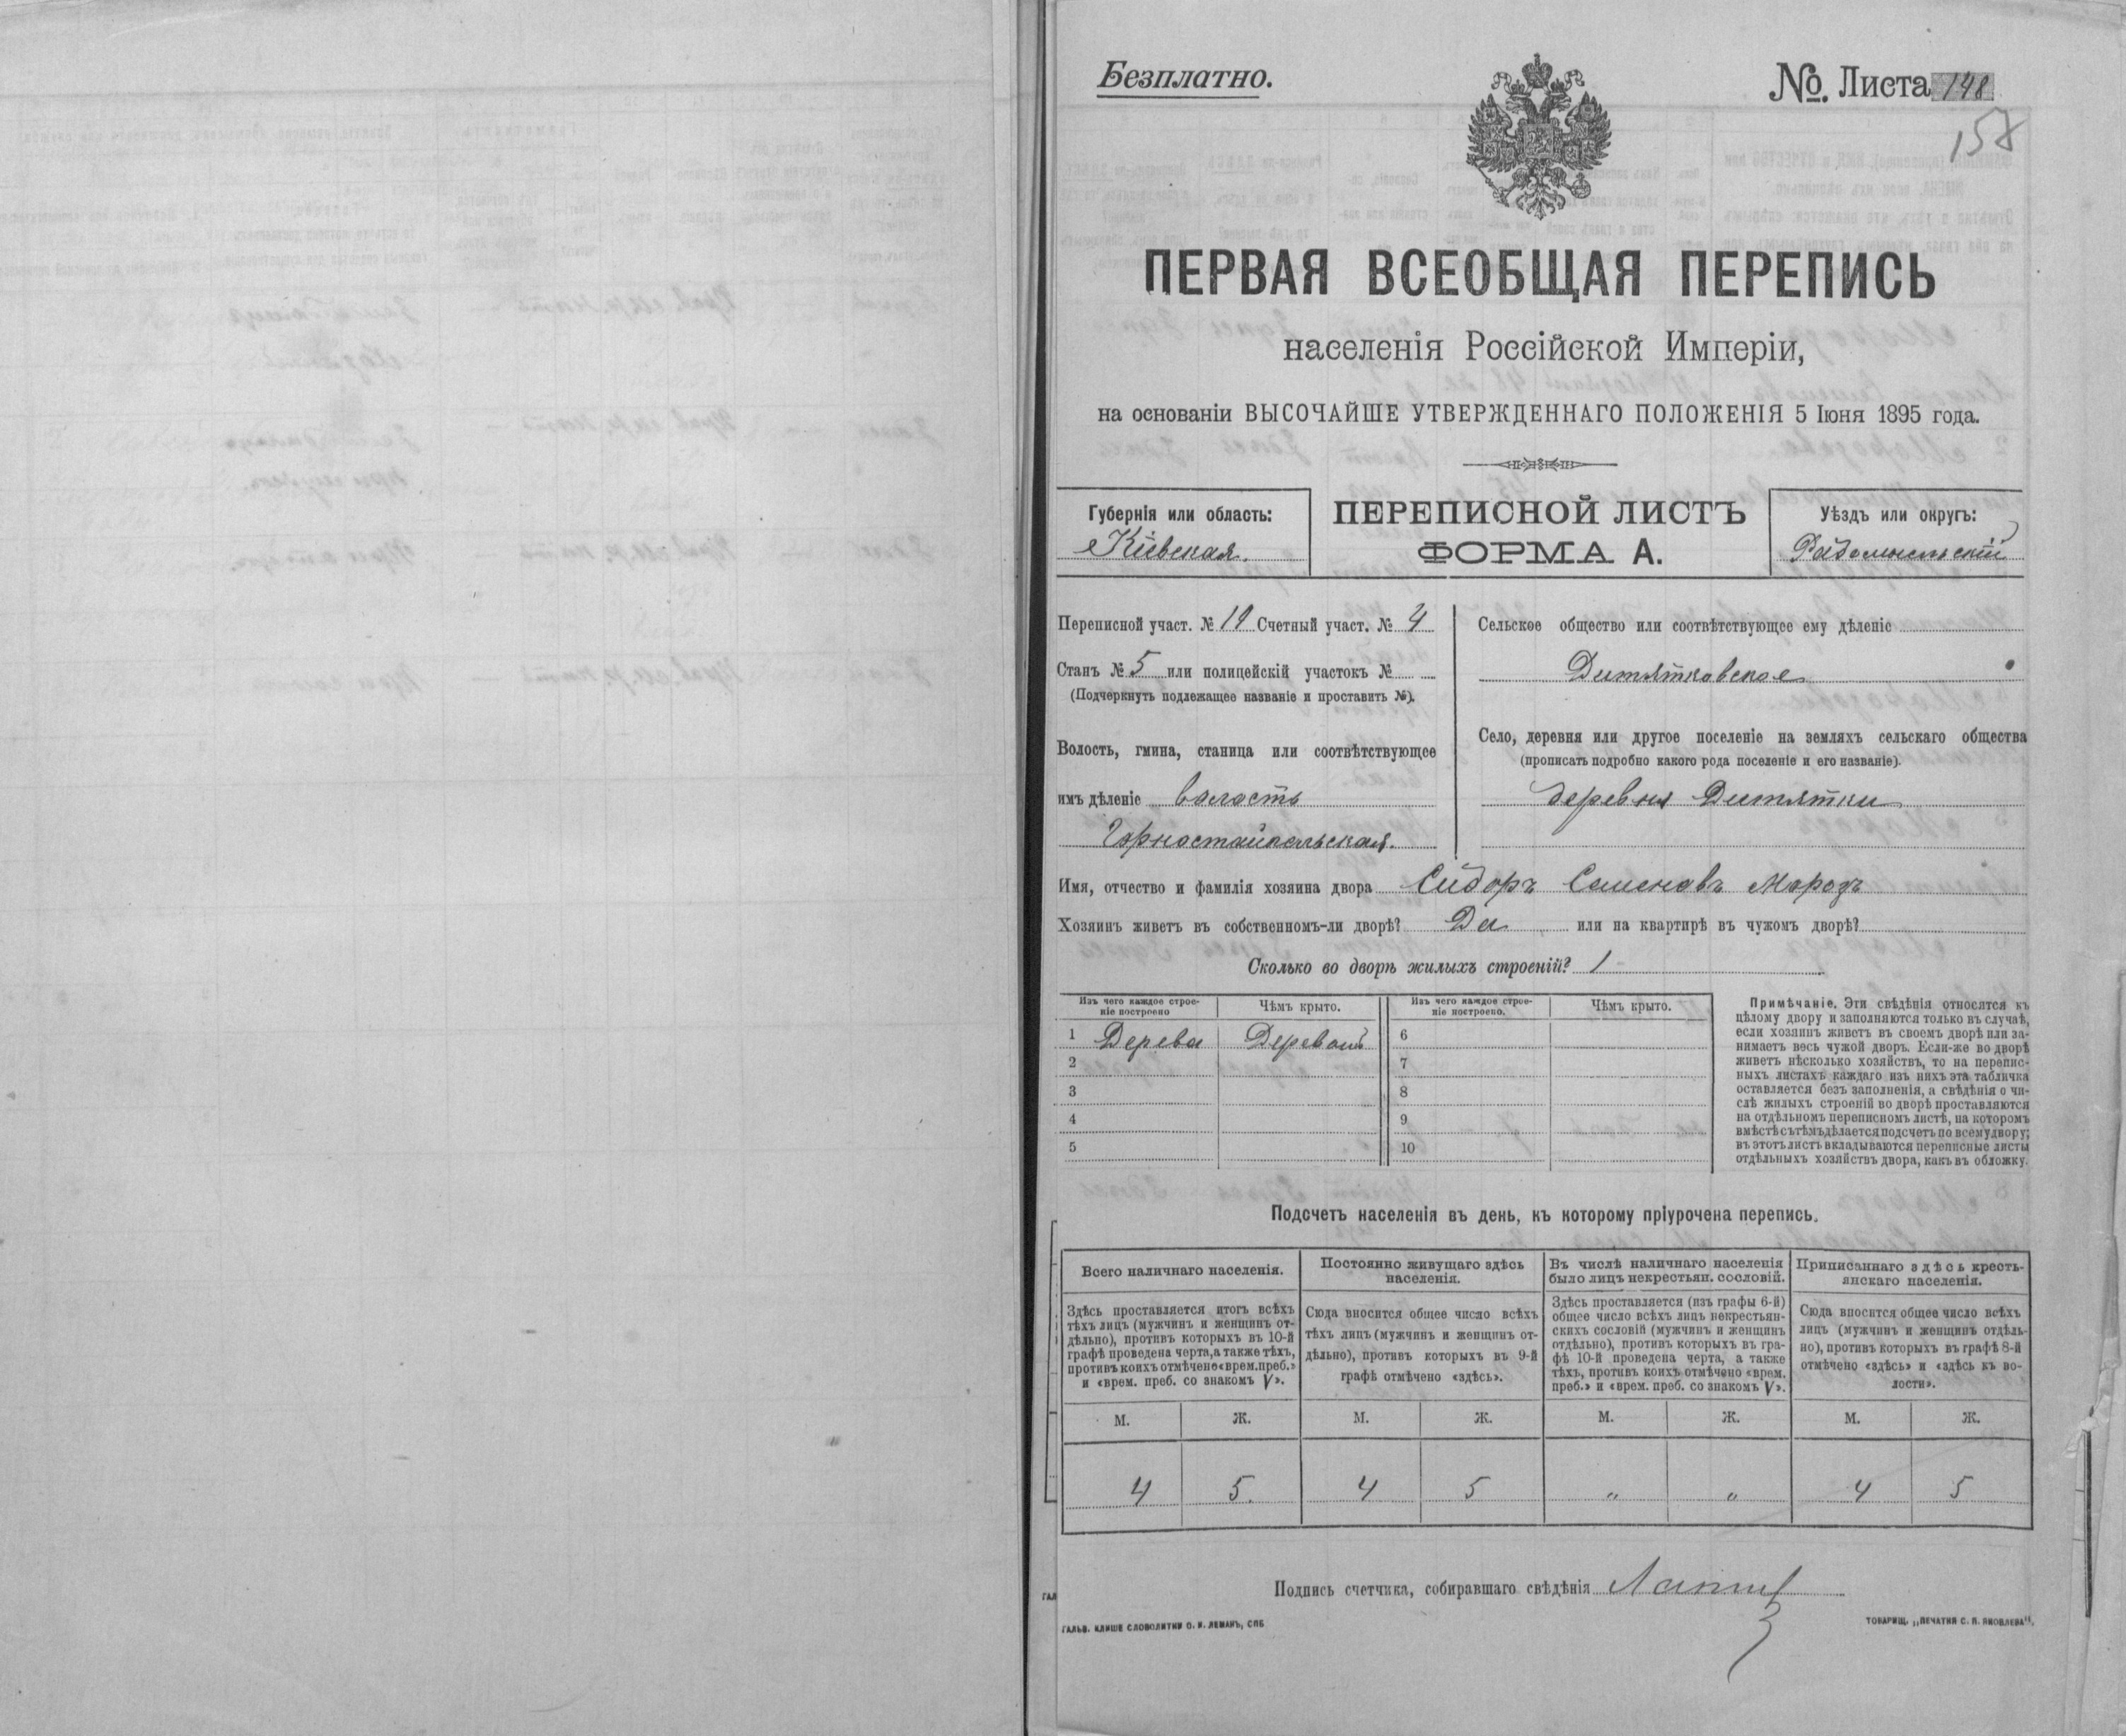 Безплатно.
№ Листа 148
158
ПЕРВАЯ ВСЕОБЩАЯ ПЕРЕПИСЬ
населенія Россійской Имперіи,
на основаніи ВЫСОЧАЙШЕ УТВЕРЖДЕННАГО ПОЛОЖЕНІЯ 5 Іюня 1895 года.
Губернія или область:
Кіевская.
ПЕРЕПИСНОЙ ЛИСТЪ
ФОРМА А.
Уѣздъ или округъ:
Радомысльскій
Переписной участ. № 19 Счетный участ. № 4
Станъ № 5 или полицейскій участокъ №
(Подчеркнуть подлежащее названіе и проставить №).
Волость, гмина, станица или соотвѣтствующее
имъ дѣленіе волость
Горностайпольская.
Сельское общество или соотвѣтствующее ему дѣленіе
Дитятковское
Село, деревня или другое поселеніе на земляхъ сельскаго общества
(прописать подробно какого рода поселеніе и его названіе).
деревня Дитятки
Имя, отчество и фамилія хозяина двора Сидоръ Семеновъ Морозъ
Хозяинъ живетъ въ собственномъ-ли дворѣ? Да или на квартирѣ въ чужомъ дворѣ?
Сколько во дворѣ жилыхъ строеній? 1
Изъ чего каждое строе-
ніе построено
Чѣмъ крыто.
Изъ чего каждое строе-
ніе построено.
Чѣмъ крыто.
1 Дерева Деревомъ 6
2 7
3 8
4 9
5 10
Примѣчаніе. Эти свѣдѣнія относятся къ
цѣлому двору и заполняются только въ случаѣ,
если хозяинъ живетъ въ своемъ дворѣ или за-
нимаетъ весь чужой дворъ. Если-же во дворѣ
живетъ нѣсколько хозяйствъ, то на перепис-
ныхъ листахъ каждаго изъ нихъ эта табличка
оставляется безъ заполненія, а свѣдѣнія о чи-
слѣ жилыхъ строеній во дворѣ проставляются
на отдѣльномъ переписномъ листѣ, на которомъ
вмѣстѣ съ тѣмъ дѣлается подсчетъ по всему двору;
въ этотъ листъ вкладываются переписные листы
отдѣльныхъ хозяйствъ двора, какъ въ обложку.
Подсчетъ населенія въ день, къ которому пріурочена перепись.
Всего наличнаго населенія.
Здѣсь проставляется итогъ всѣхъ
тѣхъ лицъ (мужчинъ и женщинъ от-
дѣльно), противъ которыхъ въ 10-й
графѣ проведена черта, а также тѣхъ,
противъ коихъ отмѣчено «врем. преб.»
и «врем. преб. со знакомъ V».
Постоянно живущаго здѣсь
населенія.
Сюда вносится общее число всѣхъ
тѣхъ лицъ (мужчинъ и женщинъ от-
дѣльно), противъ которыхъ въ 9-й
графѣ отмѣчено «здѣсь».
Въ числѣ наличнаго населенія
было лицъ некрестьян. сословій.
Здѣсь проставляется (изъ графы 6-й)
общее число всѣхъ лицъ некрестьян-
скихъ сословій (мужчинъ и женщинъ
отдѣльно), противъ которыхъ въ гра-
фѣ 10-й проведена черта, а также
тѣхъ, противъ коихъ отмѣчено «врем.
преб.» и «врем. преб. со знакомъ V».
Приписаннаго здѣсь кресть-
янскаго населенія.
Сюда вносится общее число всѣхъ
лицъ (мужчинъ и женщинъ отдѣль-
но), противъ которыхъ въ графѣ 8-й
отмѣчено «здѣсь» и «здѣсь къ во-
лости».
М. Ж. М. Ж. М. Ж. М. Ж.
4 5. 4 5 " " 4 5
Подпись счетчика, собиравшаго свѣдѣнія
ГАЛЬВ. КЛИШЕ СЛОВОЛИТНИ О. И. ЛЕМАНЪ, СПБ
ТОВАРИЩ. „ПЕЧАТНЯ С. П. ЯКОВЛЕВА".